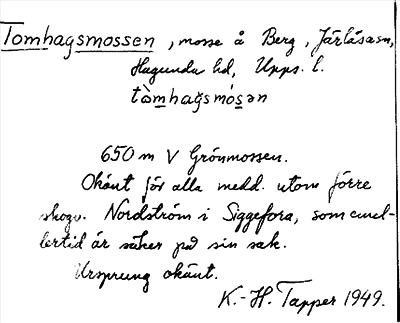 Tomhagsmossen, mosse å Berg, Järlåsasn,
Hagunda hd, Upps. l.
tòmhag̊smó̀sən
650 m V Grönmossen.
Okänt för alla medd. utom förre
skogv. Nordström i Siggefora, som emel-
lertid är säker på sin sak.
Ursprung okänt.
K.-H. Tapper 1949.